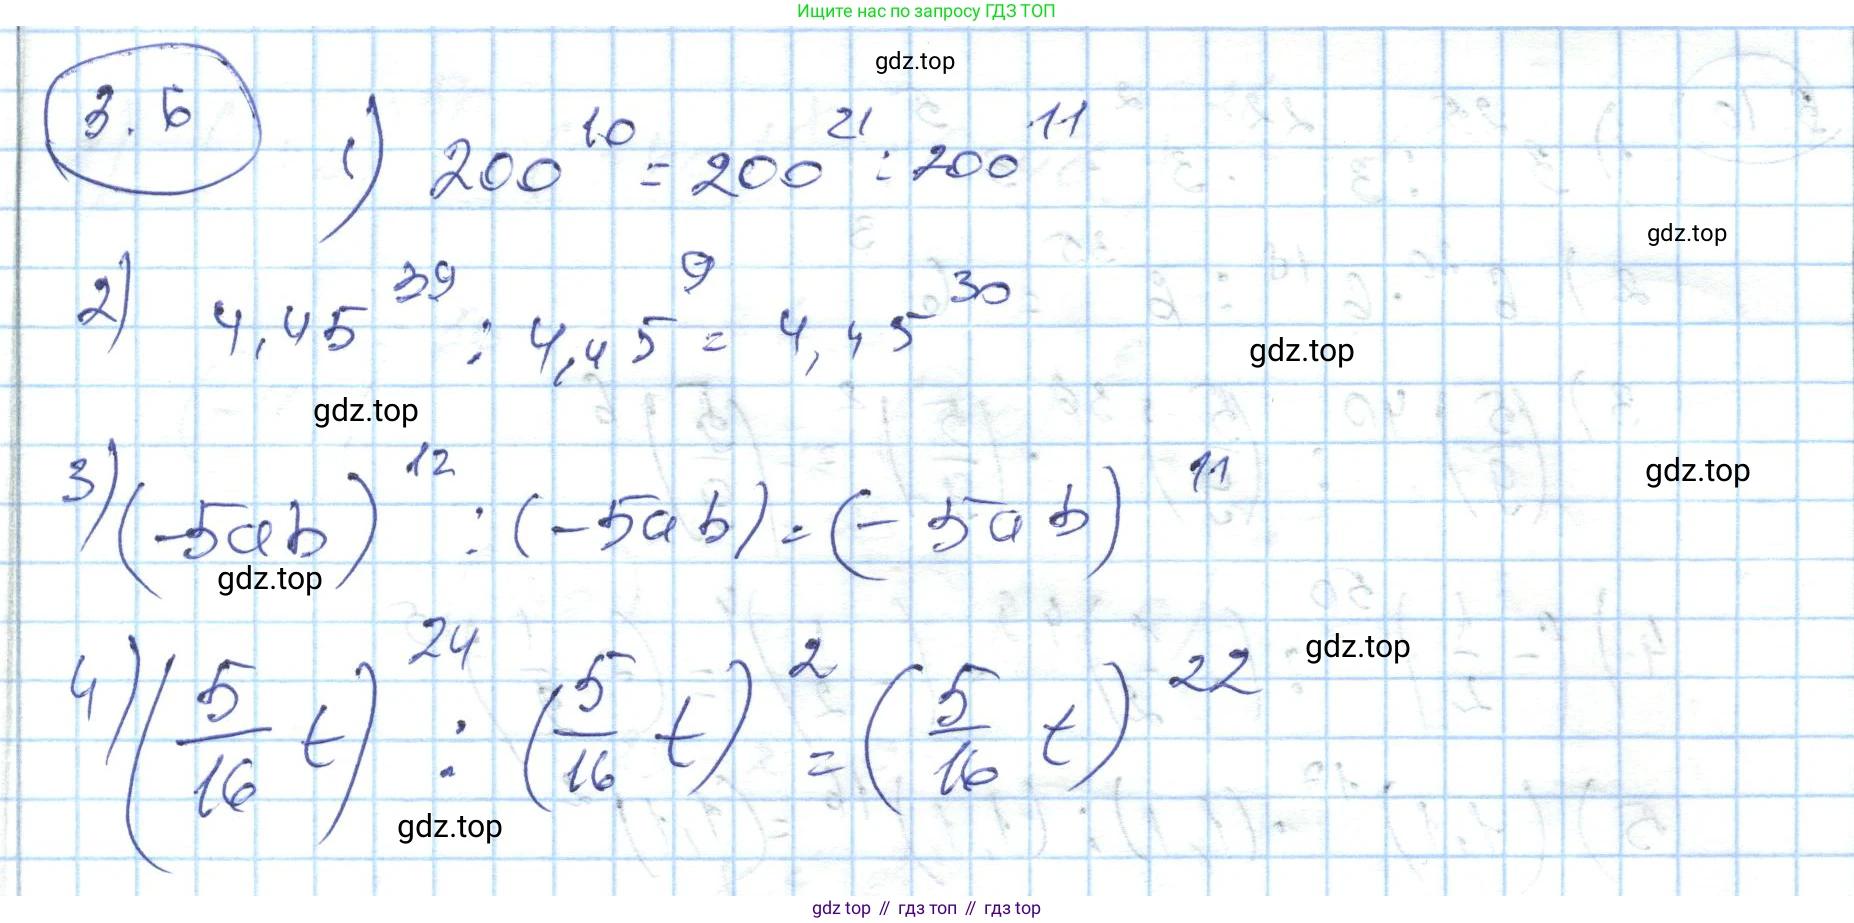 Ищите нас по запросу ГДЗ ТОП
gdz.top
3.6 1) 200^10 = 200^21 : 200^11
gdz.top
2) 4,45^39 : 4,45^9 = 4,45^30
gdz.top
gdz.top
3) (-5ab)^12 : (-5ab) = (-5ab)^11
gdz.top
gdz.top
4) (5/16 t)^24 : (5/16 t)^2 = (5/16 t)^22
gdz.top
gdz.top
gdz top // гдз топ // гдз top